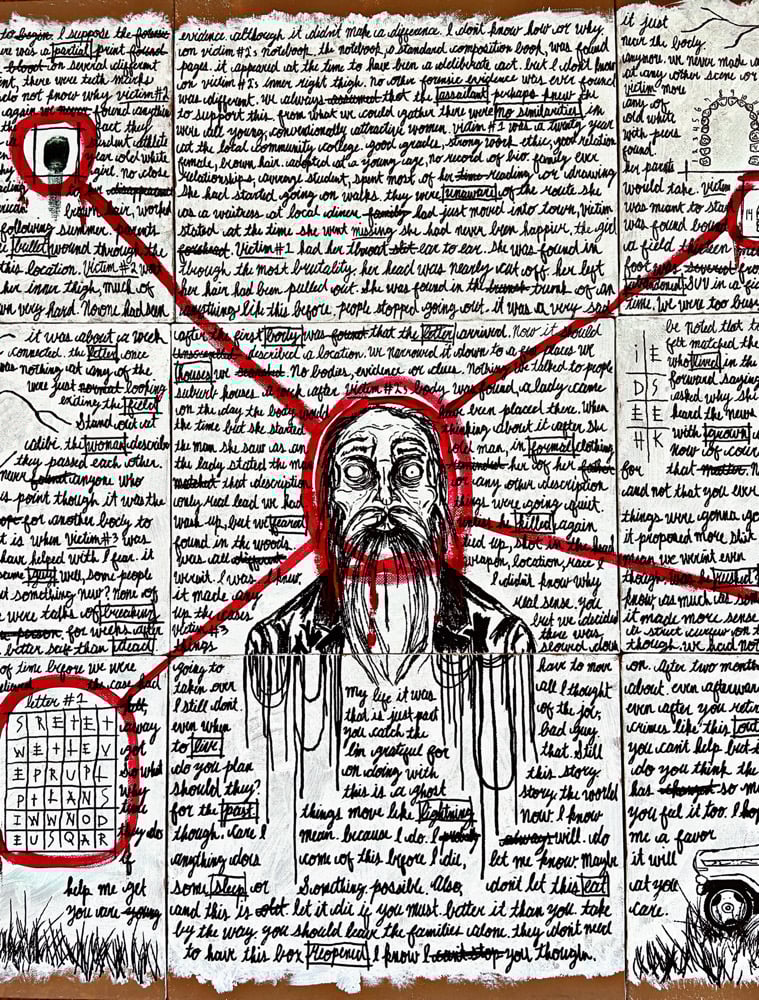 to begin. I suppose the forensic
ere was a partial print found
blood on several different
int, there were teeth marks
do not know why victim #2
again we never found anything
fact they
student athlete
year old white
girl. no close
her disappearance
brown hair, worked
following summer. parents
bullet wound through the
this location. Victim #2 was
her inner thigh, much of
wn very hard. No one had seen
evidence although it didn't make a difference. I don't know how or why
on victim #1's notebook. the notebook, a standard composition book, was found
pages. it appeared at the time to have been a deliberate act. but I don't know
on victim #2's inner right thigh. no other forensic evidence was ever found
was different. we always assumed that the assailant perhaps knew she
to support this. from what we could gather there were no similarities in
were all young, conventionally attractive women. victim #1 was a twenty year
at the local community college. good grades, strong work ethic, good relation
female, brown hair. adopted at a young age, no record of bio. family ever
relationships, average student, spent most of her time reading or drawing
She had started going on walks, they were unaware of the route she
as a waitress at local diner. family had just moved into town, victim
stated at the time she went missing she had never been happier, the girl
forehead. Victim #1 had her throat slit ear to ear. she was found in
through the most brutality, her head was nearly cut off. her left
her hair had been pulled out. she was found in the trunk of an
anything like this before, people stopped going out. it was a very sad
it just
near the body.
anymore. we never made a
at any other scene or
victim more
any of
old white
with peers
found.
her parents
would take. Victim
was meant to star
was found bound
a field thirteen
foot was severed from
abandoned SUV in a fi
time. We were too busy
1 2 3 4 5 6
14
it was about a week
connected. the letter, once
was nothing at any of the
were just normal looking
exiting the field
Stand out at
the woman describe
they passed each other.
never found anyone who
is point though it was the
hope for another body to
t is when Victim #3 was
have helped with I fear. it
same guy. well, some people
et something new? None of
were talks of breaking
for weeks after
better safe than dead.
after the first body was found that the letter arrived. Now it should
unscrambled described a location. we narrowed it down to a few places we
houses we searched. No bodies, evidence or clues. Nothing we talked to people
suburb houses. a week after Victim #2's body was found, a lady came
on the day the body would have been placed there. When
the time but she started thinking about it after she
the man she saw as an old man, in formal clothing
the lady stated the man reminded her of her father
matched that description or any other description
only real lead we had things were going quiet.
wash up, but we feared unless he killed again
found in the woods tied up, shot in the head
was all different weapon, location, race I
wrist. I was. I knew, I didn't know why
it made any real sense. you
up the cases but we decided
Victim #3 there was
things slowed down
be noted that t
felt matched the
who lived in the
forward saying
asked why she
heard the news
with grown
now of cour
for that matter. N
and not that you ever
things were gonna go
it proposed more shit
mean we weren't even
though. was he rushed?
know, as much as som
it made more sense
a strict curfew on t
though. we had not
I E
D S
E E
H K
of time before we were
the case had
left,
away
got
so what
why
time
they do
if
help me get
you are young
letter #1
S R E T E T
W E T L E V
E P R U P L
P T L A N S
I W W N O D
E U S Q A R
going to have to move
taken over my life it was all I thought
I still don't that is just part of the job,
even when you catch the bad guy.
to live I'm grateful for that. Still
do you plan on doing with this story.
should they? this is a ghost story the world
for the past things move like lightning now I know
though. care I mean. because I do. I probably always will. do
anything does come of this before I die, let me know Maybe
some sleep or Something possible. Also, don't let this eat
and this is old. let it die if you must. better it than you. take
by the way, you should leave the families alone. they don't need
to have this box reopened. I know I can't stop you though.
on. After two month
about. even afterwar
even after you retir
crimes like this
you can't help but
do you think the
has changed so m
you feel it too. I hop
me a favor
it will
at you
care.